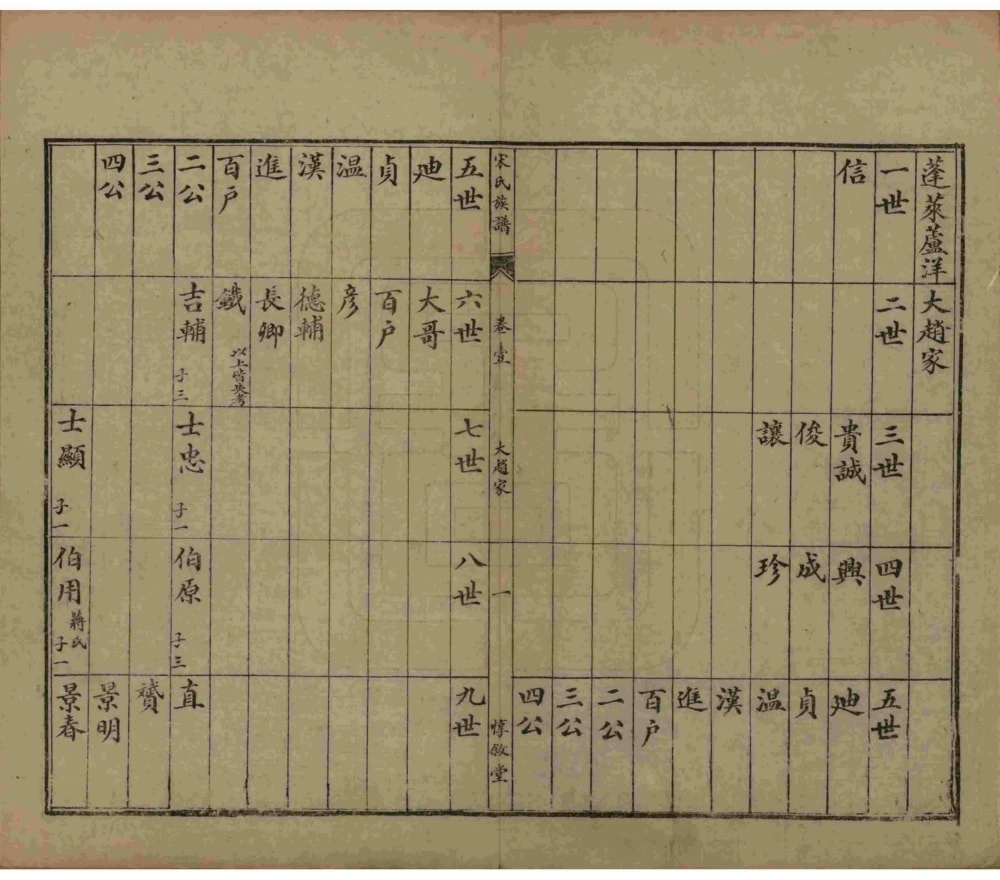 蓬萊蘆洋大趙家
一世 二世 三世 四世 五世
信 貴誠 興 迪
俊 成 貞
讓 珍 温
漢
進
百户
二公
三公
四公
宋氏族譜 卷壹 大趙家 一 惇敘堂
五世 六世 七世 八世 九世
迪 大哥
貞 百户
温 彦
漢 德輔
進 長卿
百户 鐵 以上皆無考
二公 吉輔 子三 士忠 子一 伯原 子三 直
三公 贇
四公 景明
士顯 子一 伯用 蔣氏 子一 景春